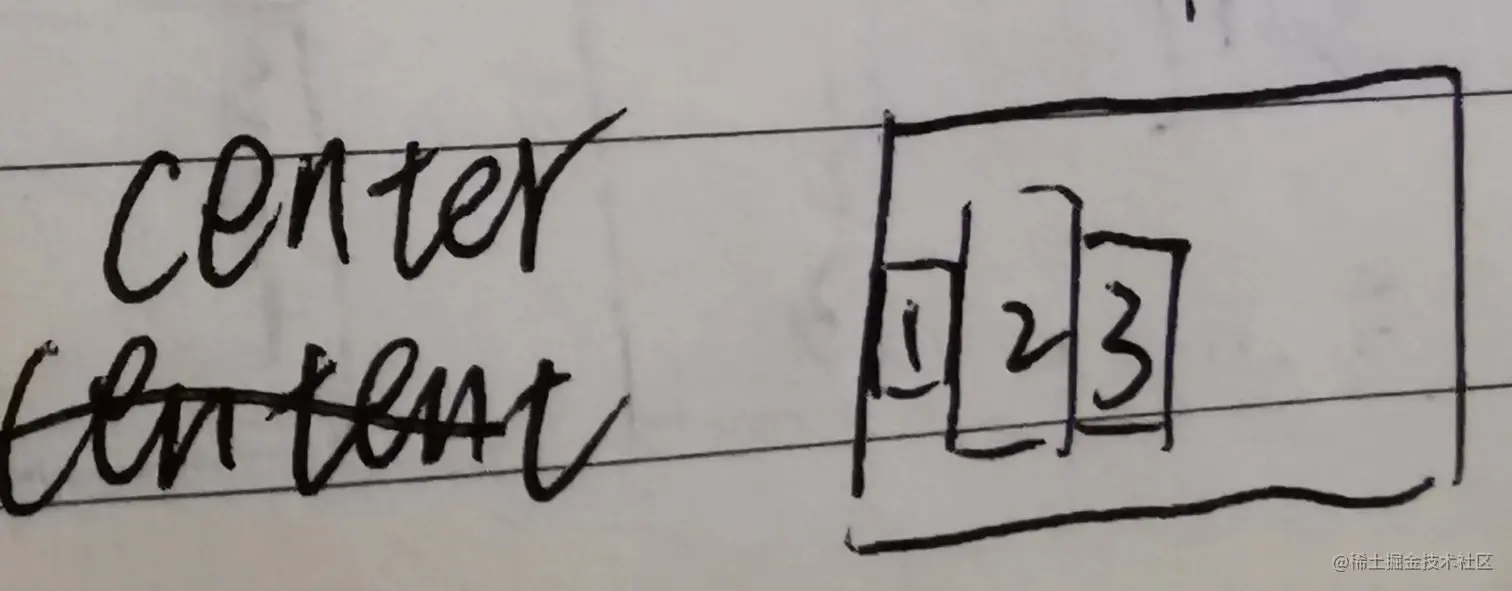 center
centent
1 2 3
@稀土掘金技术社区